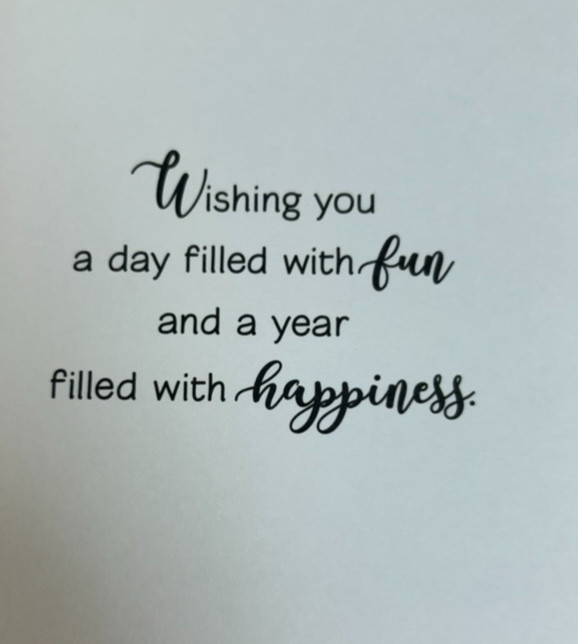 Wishing you
a day filled with fun
and a year
filled with happiness.